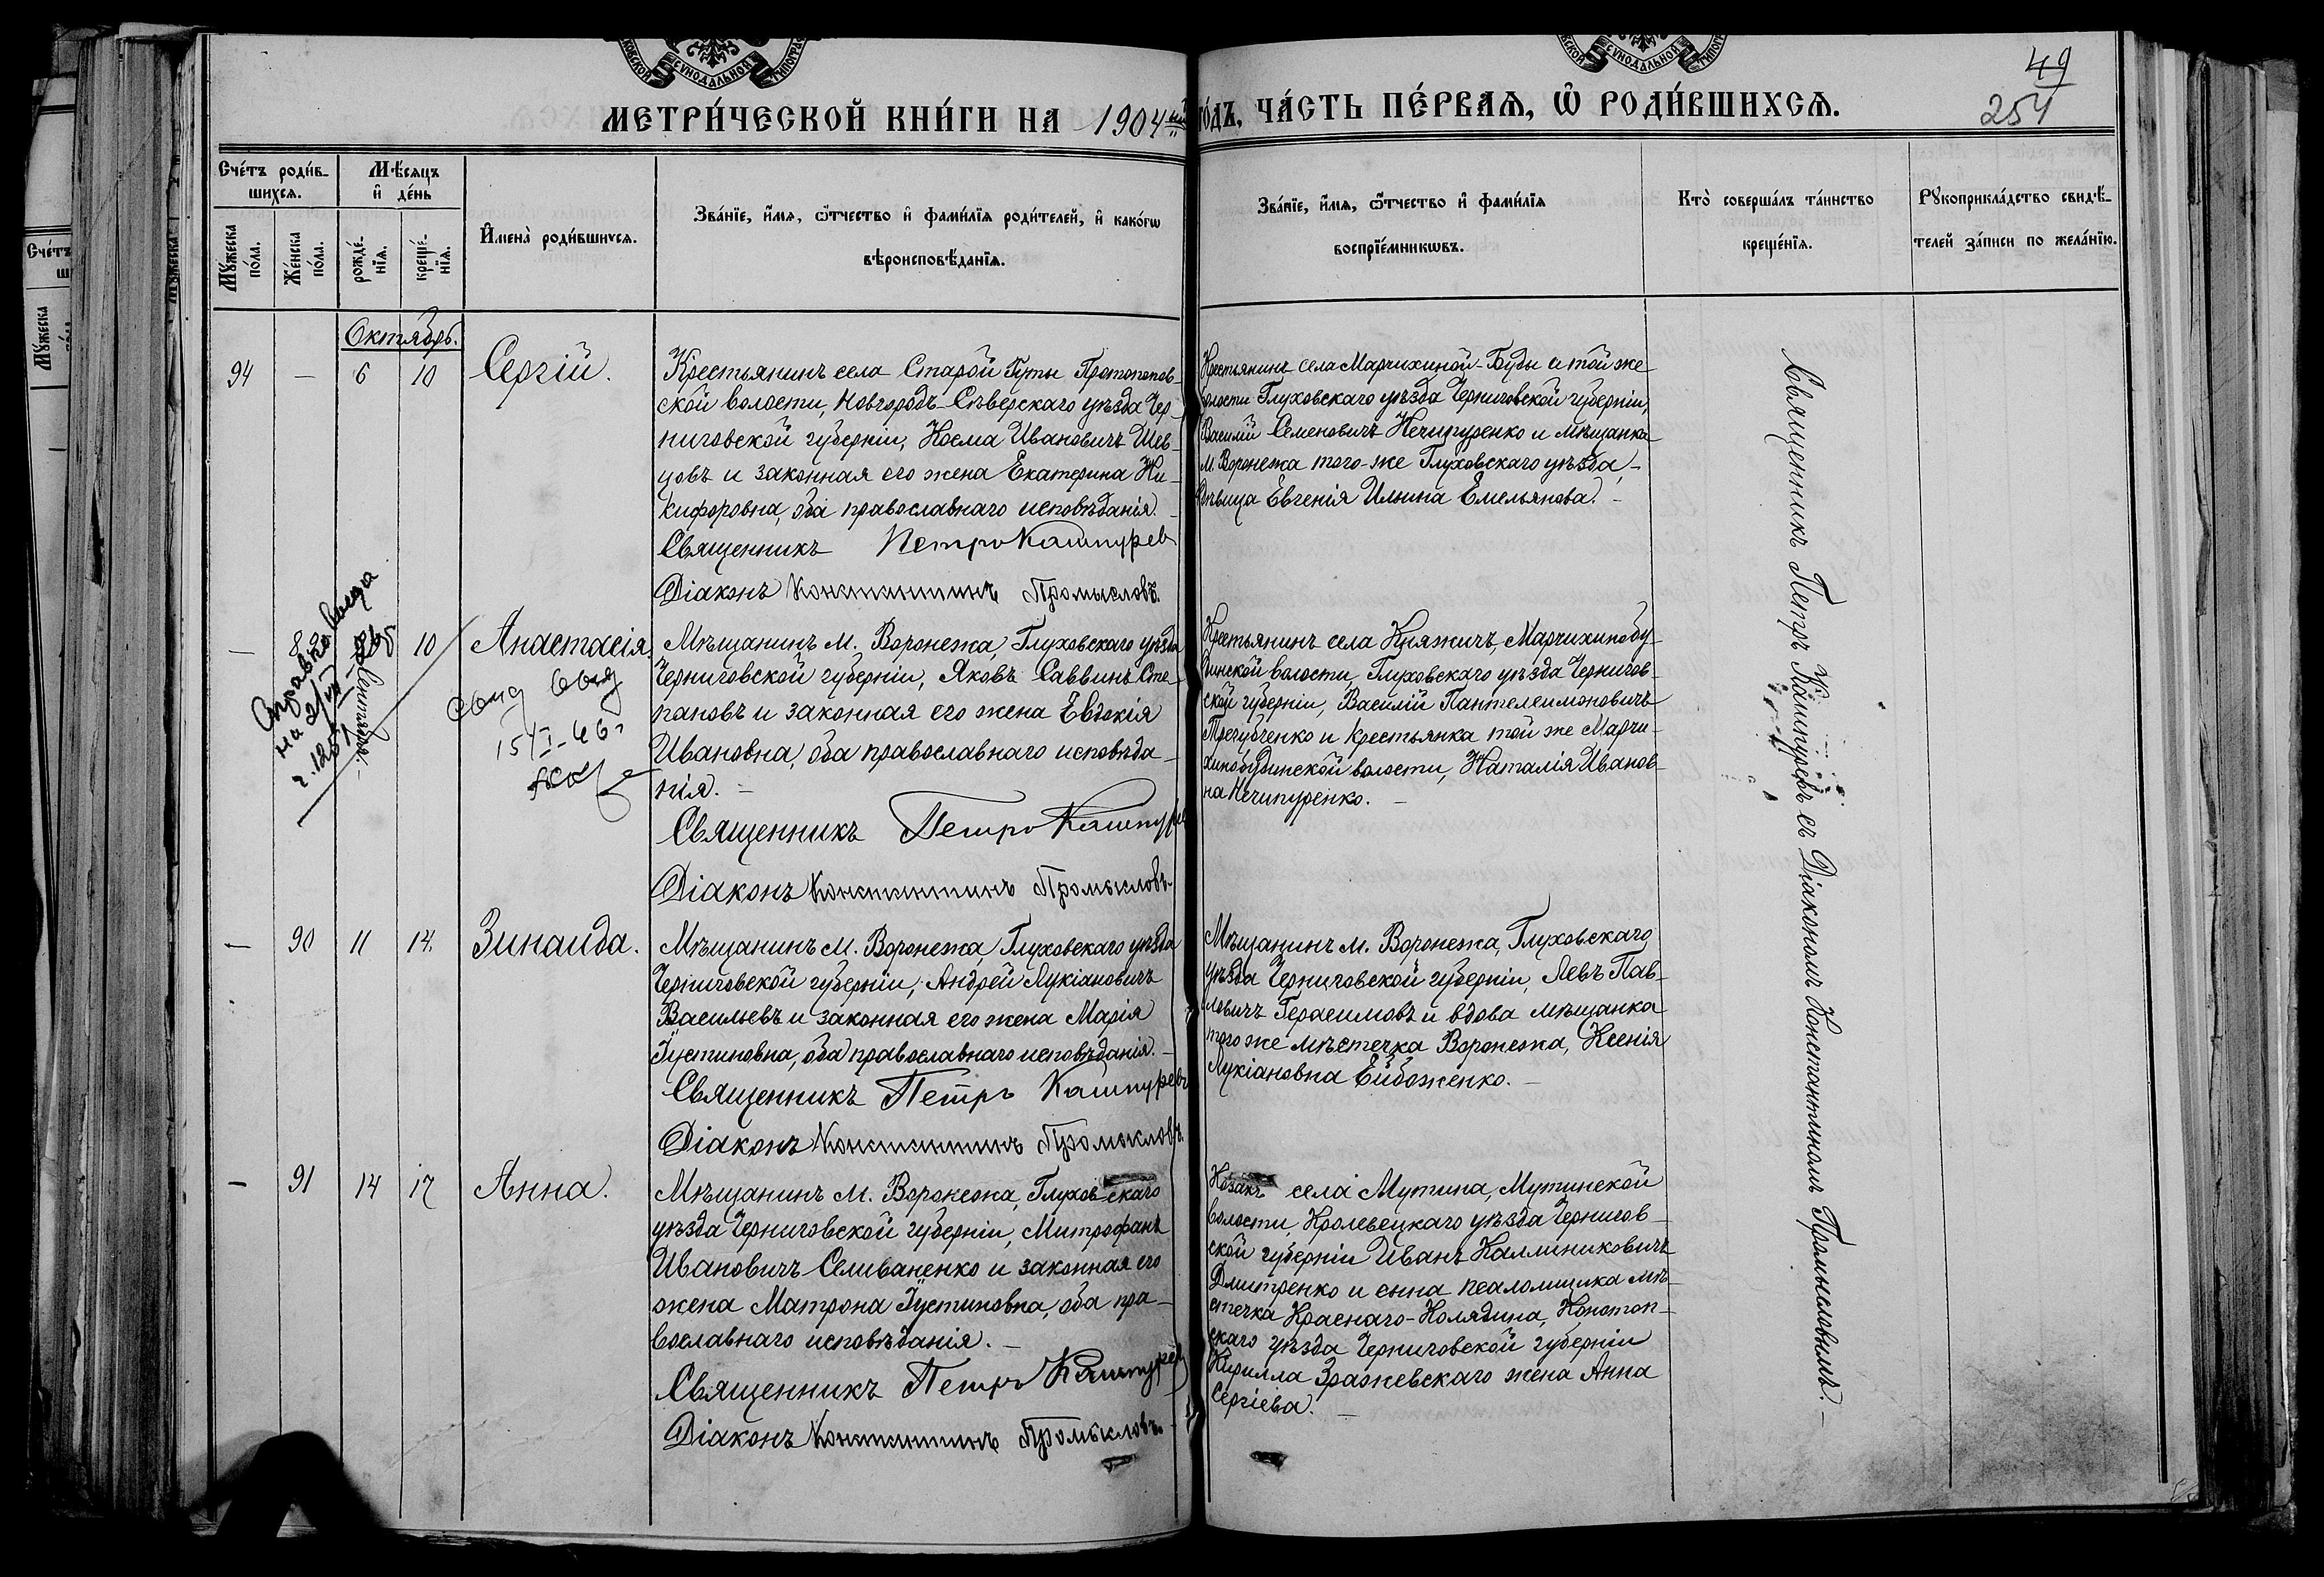 СѴНОДАЛЬНОЙ
СѴНОДАЛЬНОЙ
МЕТРИ́ЧЕСКОЙ КНИ́ГИ НА 1904
ЧА́СТЬ ПЕ́РВАѦ, Ѽ РОДИ́ВШИХСѦ.
49
254
Сче́тъ роди́в-
шихсѧ.
Мѣ́сѧцъ
и҆ де́нь
И҆мена̀ роди́вшихсѧ.
Зва́нїе, и҆́мѧ, ѻ҆́тчество и҆ фами́лїѧ роди́телей, и҆ како́гѡ
вѣроисповѣ́данїѧ.
Мꙋ́жеска
по́ла.
Же́нска
по́ла.
рожде́-
нїѧ.
креще́-
нїѧ.
Зва́нїе, и҆́мѧ, ѻ҆́тчество и҆ фами́лїѧ
воспрїе́мникѡвъ.
Кто̀ соверша́лъ та́инство
креще́нїѧ.
Рꙋкоприкла́дство свидѣ́-
телей за́писи по жела́нїю.
Октябрь.
94 — 6 10 Сергій.
Крестьянинъ села Старой Гуты Протопопов-
ской волости, Новгородъ-Сѣверскаго уѣзда Чер-
ниговской губерніи, Косма Ивановичъ Шев-
цовъ и законная его жена Екатерина Ни-
кифоровна, оба православнаго исповѣданія.
Священникъ Петръ Кашпуревъ
Діаконъ Константинъ Промысловъ.
Крестьянинъ села Марчихиной-Буды и той же
волости Глуховскаго уѣзда Черниговской губерніи,
Василій Семеновичъ Нечипуренко и мѣщанка
м. Воронежа того-же Глуховскаго уѣзда,
дѣвица Евгенія Ильина Емельянова. –
— 10 Анастасія.
Мѣщанинъ м. Воронежа, Глуховскаго уѣзда
Черниговской губерніи, Яковъ Саввинъ Сте-
пановъ и законная его жена Евдокія
Ивановна, оба православнаго исповѣда-
нія. –
Священникъ Петръ Кашпуревъ
Діаконъ Константинъ Промысловъ.
Справка
на
Сентября.
15/I-46 г
Крестьянинъ села Княжичъ, Марчихинобу-
динской волости, Глуховскаго уѣзда Чернигов-
ской губерніи, Василій Пантелеимоновичъ
и крестьянка той же Марчи-
хинобудинской волости, Наталія Иванов-
на Нечипуренко. –
— 90 11 14. Зинаида.
Мѣщанинъ м. Воронежа, Глуховскаго уѣзда
Черниговской губерніи, Андрей Лукіановичъ
Васильевъ и законная его жена Марія
Іустиновна, оба православнаго исповѣданія. –
Священникъ Петръ Кашпуревъ
Діаконъ Константинъ Промысловъ.
Мѣщанинъ м. Воронежа, Глуховскаго
уѣзда Черниговской губерніи, Левъ Пав-
ловичъ Герасимовъ и вдова мѣщанка
того же мѣстечка Воронежа, Ксенія
Лукіановна Ейбоженко. –
— 91 14 17 Анна.
Мѣщанинъ м. Воронежа, Глуховскаго
уѣзда Черниговской губерніи, Митрофанъ
Ивановичъ Селиваненко и законная его
жена Матрона Іустиновна, оба пра-
вославнаго исповѣданія. –
Священникъ Петръ Кашпуревъ
Діаконъ Константинъ Промысловъ.
Козакъ села Мутина, Мутинской
волости, Кролевецкаго уѣзда Чернигов-
ской губерніи Иванъ Каллиниковичъ
Дмитренко и псаломщика мѣ-
стечка Краснаго-Колядина, Конотоп-
скаго уѣзда Черниговской губерніи
Кирилла Зражевскаго жена Анна
Сергіева. –
Священникъ Петръ Кашпуревъ съ Діакономъ Константиномъ Промысловымъ. –